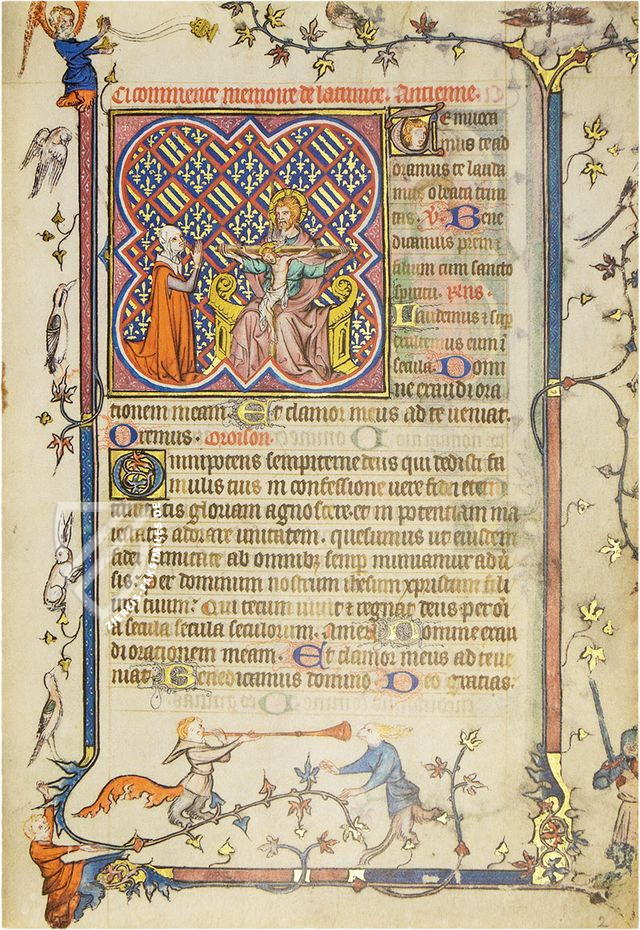 Ci commence memoire de la trinite. Antienne.
Te invoca
mus te ad
oramus te lauda
mus o beata trini
tas. V. Bene
dicamus prem et
filium cum sancto
spiritu. Rens.
Laudemus et sup
exaltemus eum i
secula. Domi
ne exaudi ora
tionem meam. Et clamor meus ad te veniat.
Oremus. Oroison.
Omnipotens sempiterne deus qui dedisti fa
mulis tuis in confessione vere fidei eterne
trinitatis gloriam agnoscere. et in potentiam ma
iestatis adorare unitatem. quesumus ut eiusdem
fidei firmitate ab omnibz semp muniamur aduer
sis. Per dominum nostrum ihesum xpristum fili
um tuum. Qui tecum vivit et regnat deus per oi
a secula seculorum. Amen. Domine exau
di orationem meam. Et clamor meus ad te ve
niat. Benedicamus domino. Deo gratias.
2